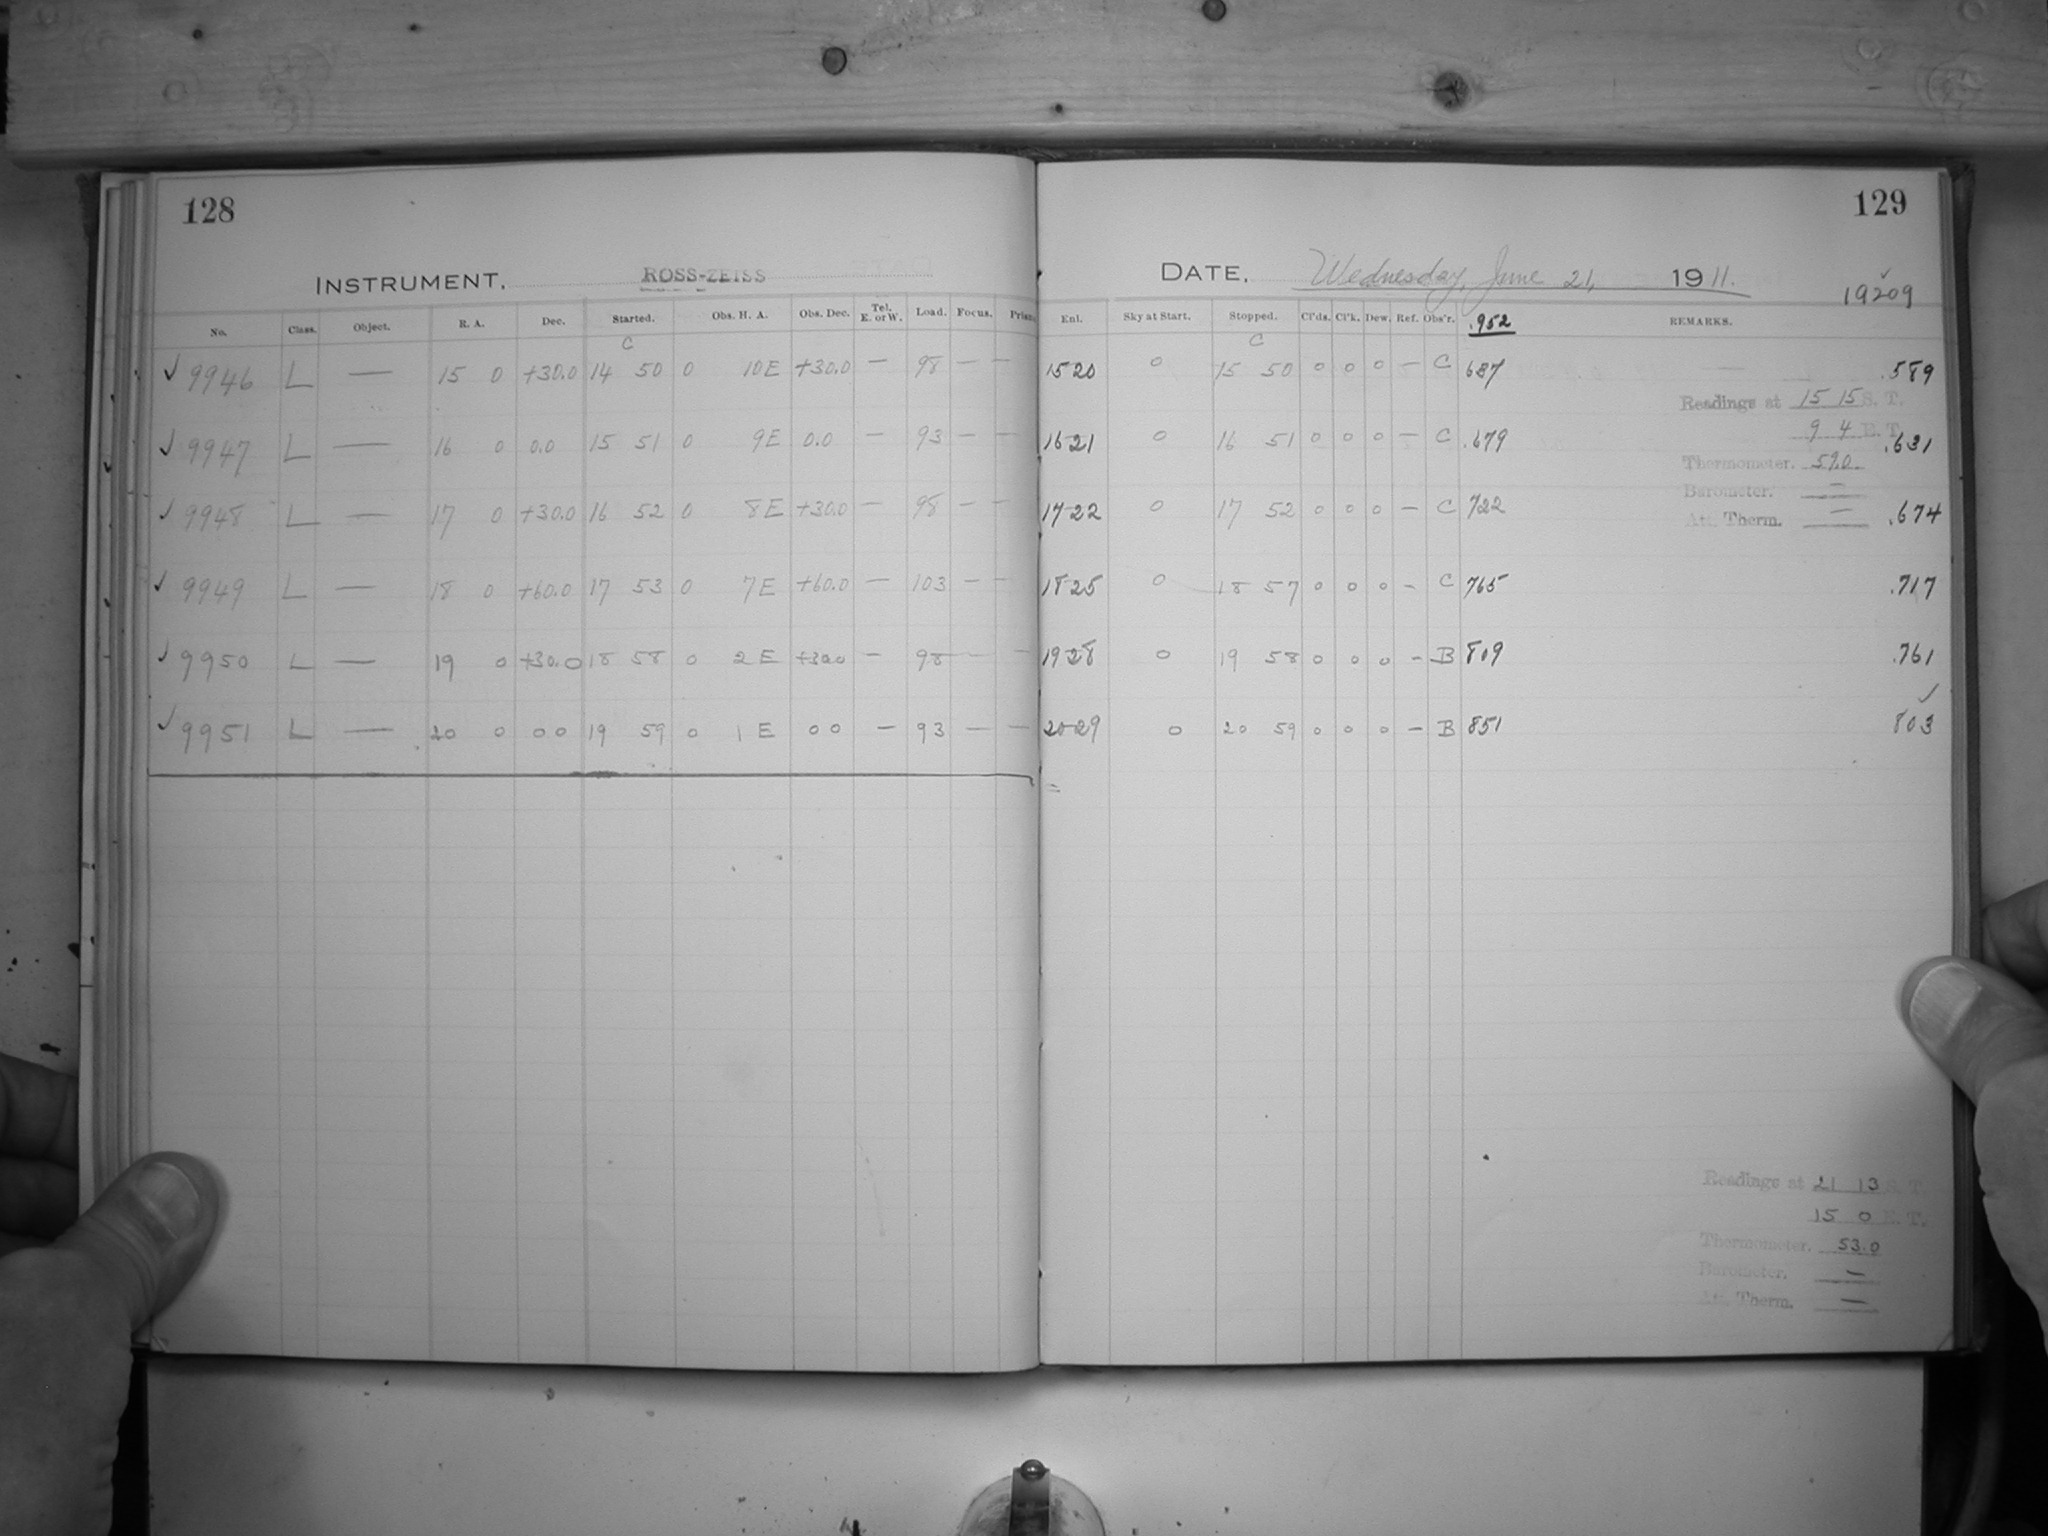 128
INSTRUMENT, ROSS-ZEISS
No. Class. Object. R. A. Dec. Started. Obs. H. A. Obs. Dec. Tel. E. or W. Load. Focus. Prism
C
✓ 9946 L — 15 0 +30.0 14 50 0 10E +30.0 — 98 — —
✓ 9947 L — 16 0 0.0 15 51 0 9E 0.0 — 93 — —
✓ 9948 L — 17 0 +30.0 16 52 0 8E +30.0 — 98 — —
✓ 9949 L — 18 0 +60.0 17 53 0 7E +60.0 — 103 — —
✓ 9950 L — 19 0 +30.0 18 58 0 2E +30.0 — 98 — —
✓ 9951 L — 20 0 00 19 59 0 1E 00 — 93 — —
129
DATE, Wednesday, June 21, 1911.
✓
19209
Enl. Sky at Start. Stopped. Cl'ds. Cl'k. Dew. Ref. Obs'r. .952 REMARKS.
C
15 20 0 15 50 0 0 0 — C 687 .589
Readings at 15 15 S. T.
9 4 E. T.
16 21 0 16 51 0 0 0 — C .679 .631
Thermometer. 59.0
Barometer. —
Att. Therm. —
17 22 0 17 52 0 0 0 — C 722 .674
18 25 0 18 57 0 0 0 — C 765 .717
19 28 0 19 58 0 0 0 — B 809 .761
✓
20 29 0 20 59 0 0 0 — B 851 803
=
Readings at 21 13 S. T.
15 0 E. T.
Thermometer. 53.0
Barometer. —
Att. Therm. —